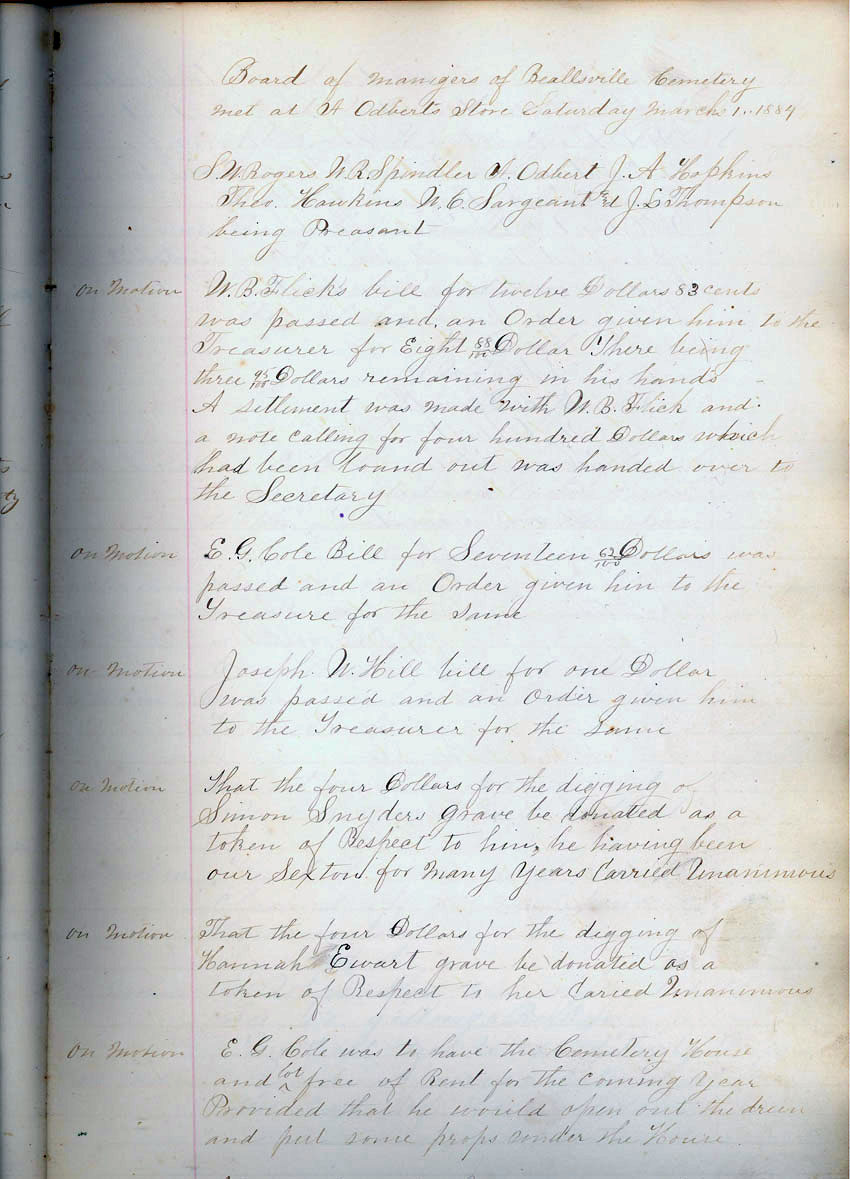 Board of Manigers of Beallsville Cemetery
met at A Odberts Store Saturday March 1.. 1884
S. W. Rogers W. R. Spindler A. Odbert J. A Hopkins
Theo. Hawkins W. C. Sargeant & J. L Thompson
being Preasant
on Motion W. B. Flick's bill for twelve Dollars 83 cents
was passed and an Order given him to the
Treasurer for Eight 88/100 Dollar There being
three 95/100 Dollars remaining in his hands
A setlment was made with W. B. Flick and
a note calling for four hundred Dollars which
had been loand out was handed over to
the Secretary
on Motion E. G. Cole Bill for Seventeen 62/100 Dollars was
passed and an Order given him to the
Treasure for the same
on Motion Joseph. W. Hill bill for one Dollar
was passed and an Order given him
to the Treasurer for the same
on Motion That the four Dollars for the digging of
Simon Snyders grave be donated as a
token of Respect to him, he having been
our Sexton for Many Years Carried Unanimous
on Motion That the four Dollars for the digging of
Hannah Ewart grave be donated as a
token of Respect to her Caried Unanimous
on Motion E. G. Cole was to have the Cemetery House
and lot free of Rent for the coming Year
Provided that he would open out the dreen
and put some props under the House